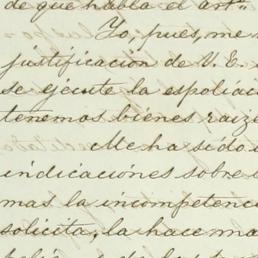 de que habla el artº
Yo, pues, me
justificacion de V. E.
se ejecute la espoliac
tenemos bienes raize
Me ha sido
indicaciones sobre
mas la incompetenc
solicita, la hace ma